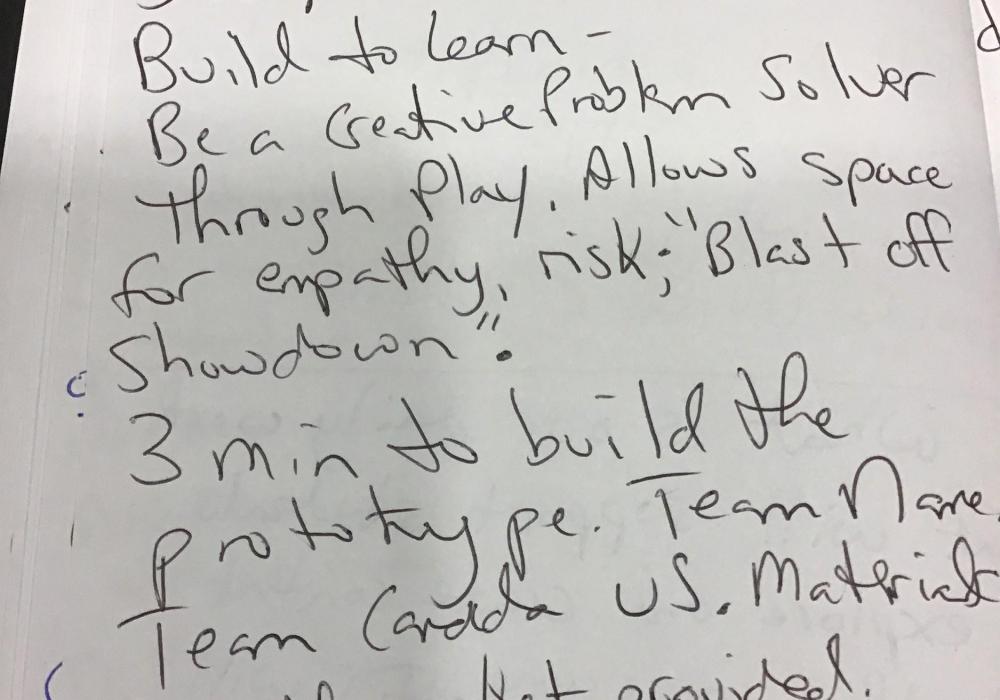 Build to learn -
Be a Creative Problem Solver
through Play. Allows space
for empathy, risk; "Blast off
Showdown".
3 min to build the
prototype. Team Name.
Team Canada US. Materials
Not provided.